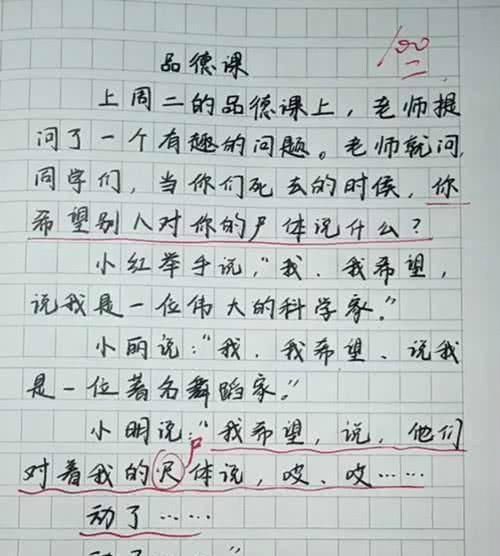 100
品德课
上周二的品德课上，老师提
问了一个有趣的问题。老师就问，
同学们，当你们死去的时候，你
希望别人对你的尸体说什么？
小红举手说，"我、我希望，
说我是一位伟大的科学家。"
小丽说："我、我希望、说我
是一位著名舞蹈家。"
小明说："我希望，说，他们
对着我的尺体说，哎、哎……
尸
动了……